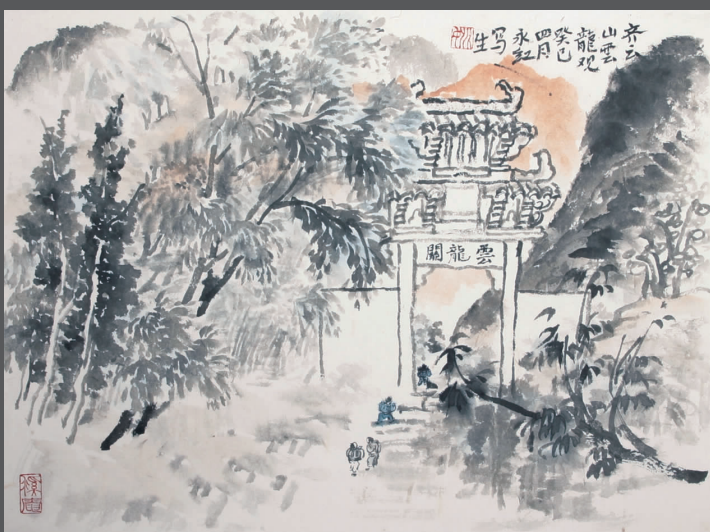 齐云
山雲
龍观
癸巳
四月
永红
写
生
雲龍關